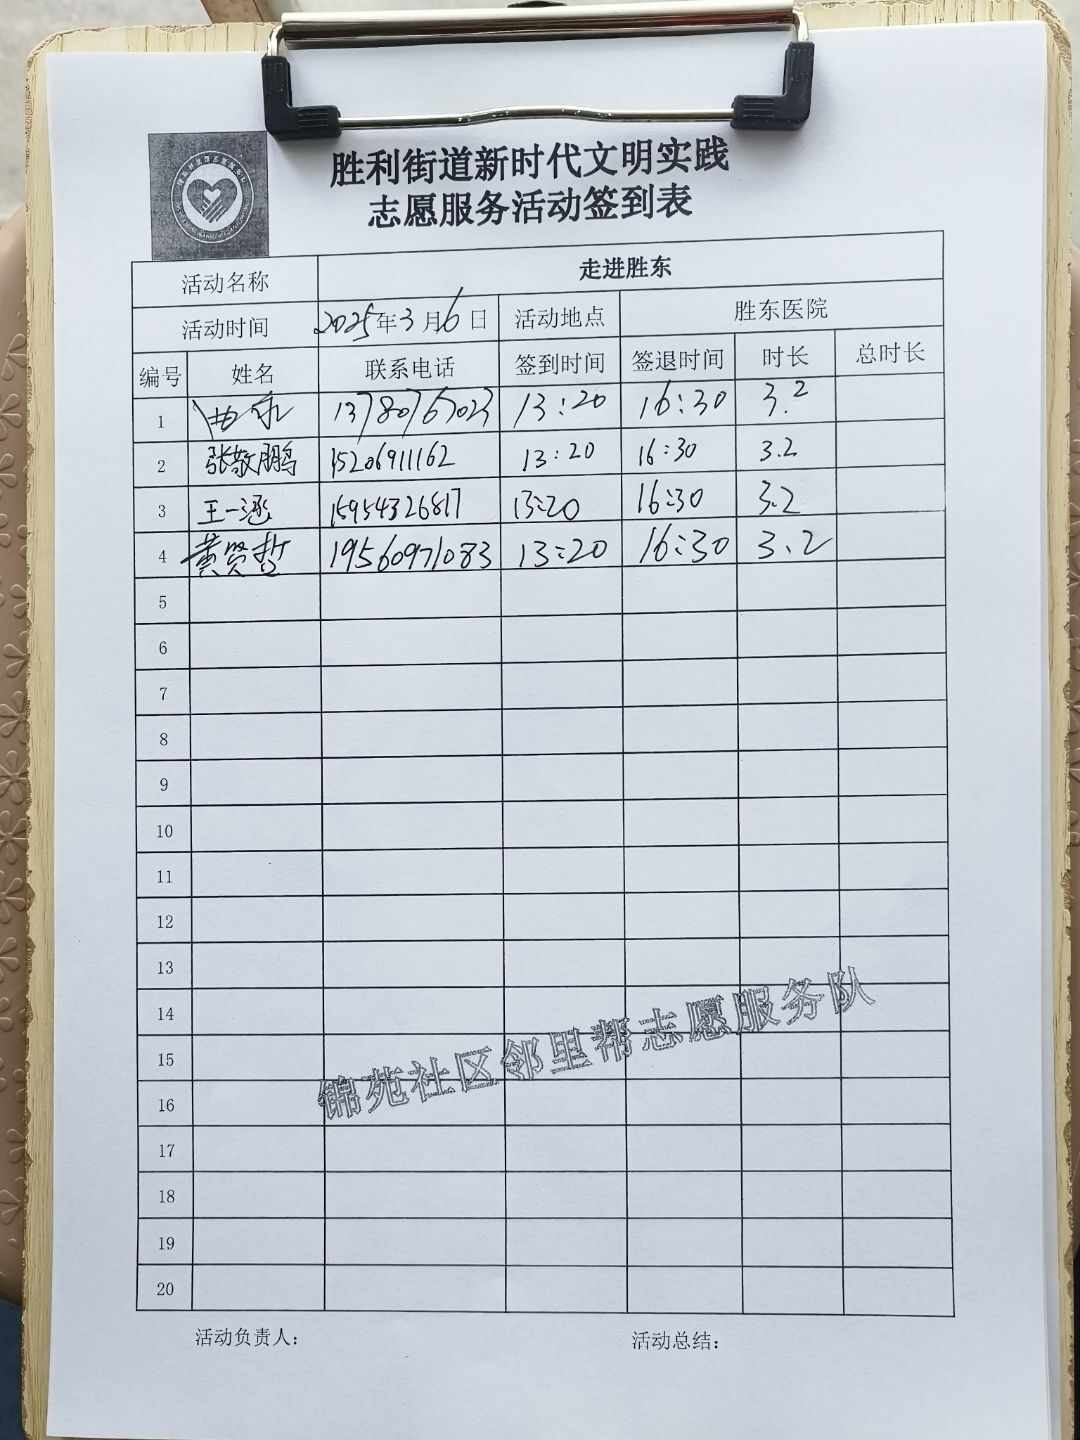 胜利街道新时代文明实践
志愿服务活动签到表
活动名称 走进胜东
活动时间 2025年3月6日 活动地点 胜东医院
编号 姓名 联系电话 签到时间 签退时间 时长 总时长
1 13780767023 13:20 16:30 3.2
2 张敬鹏 15206911162 13:20 16:30 3.2
3 王一涵 15954326817 13:20 16:30 3.2
4 黄贤哲 19560971083 13:20 16:30 3.2
5
6
7
8
9
10
11
12
13
14
15
16
17
18
19
20
锦苑社区邻里帮志愿服务队
活动负责人： 活动总结：